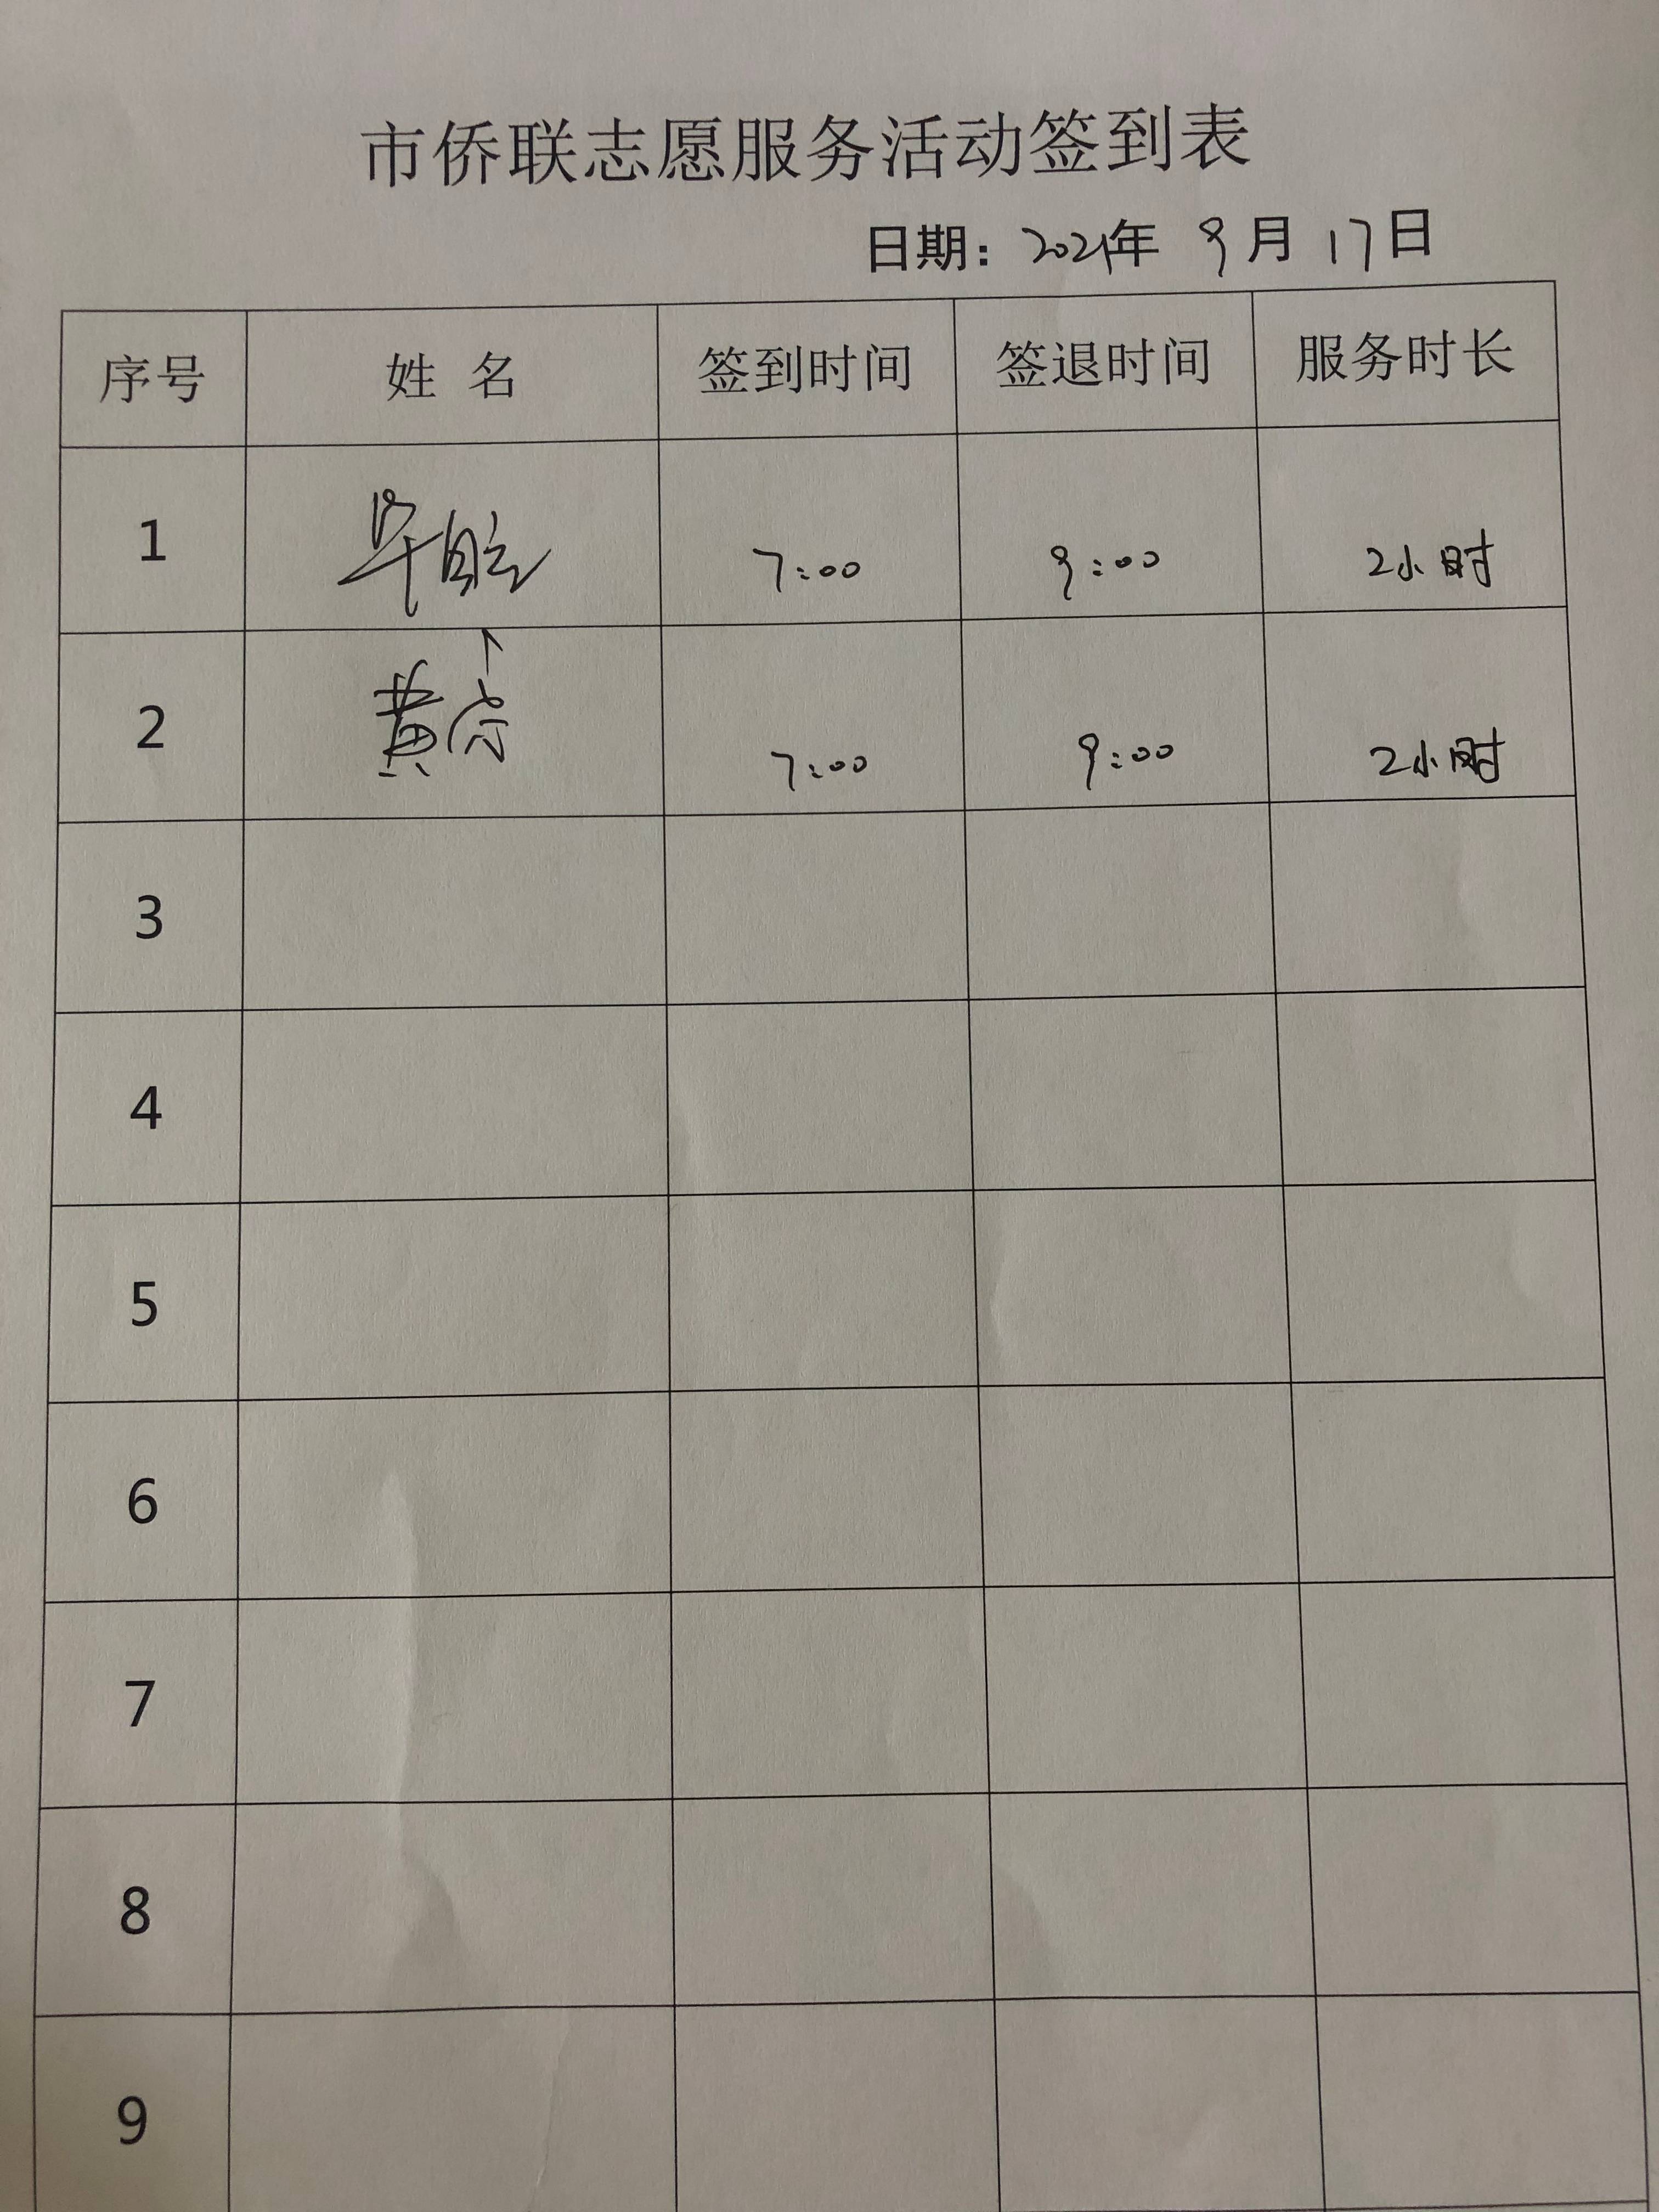 市侨联志愿服务活动签到表
日期：2021年 9月 17日
序号 姓 名 签到时间 签退时间 服务时长
1 7:00 9:00 2小时
2 黄 7:00 9:00 2小时
3
4
5
6
7
8
9